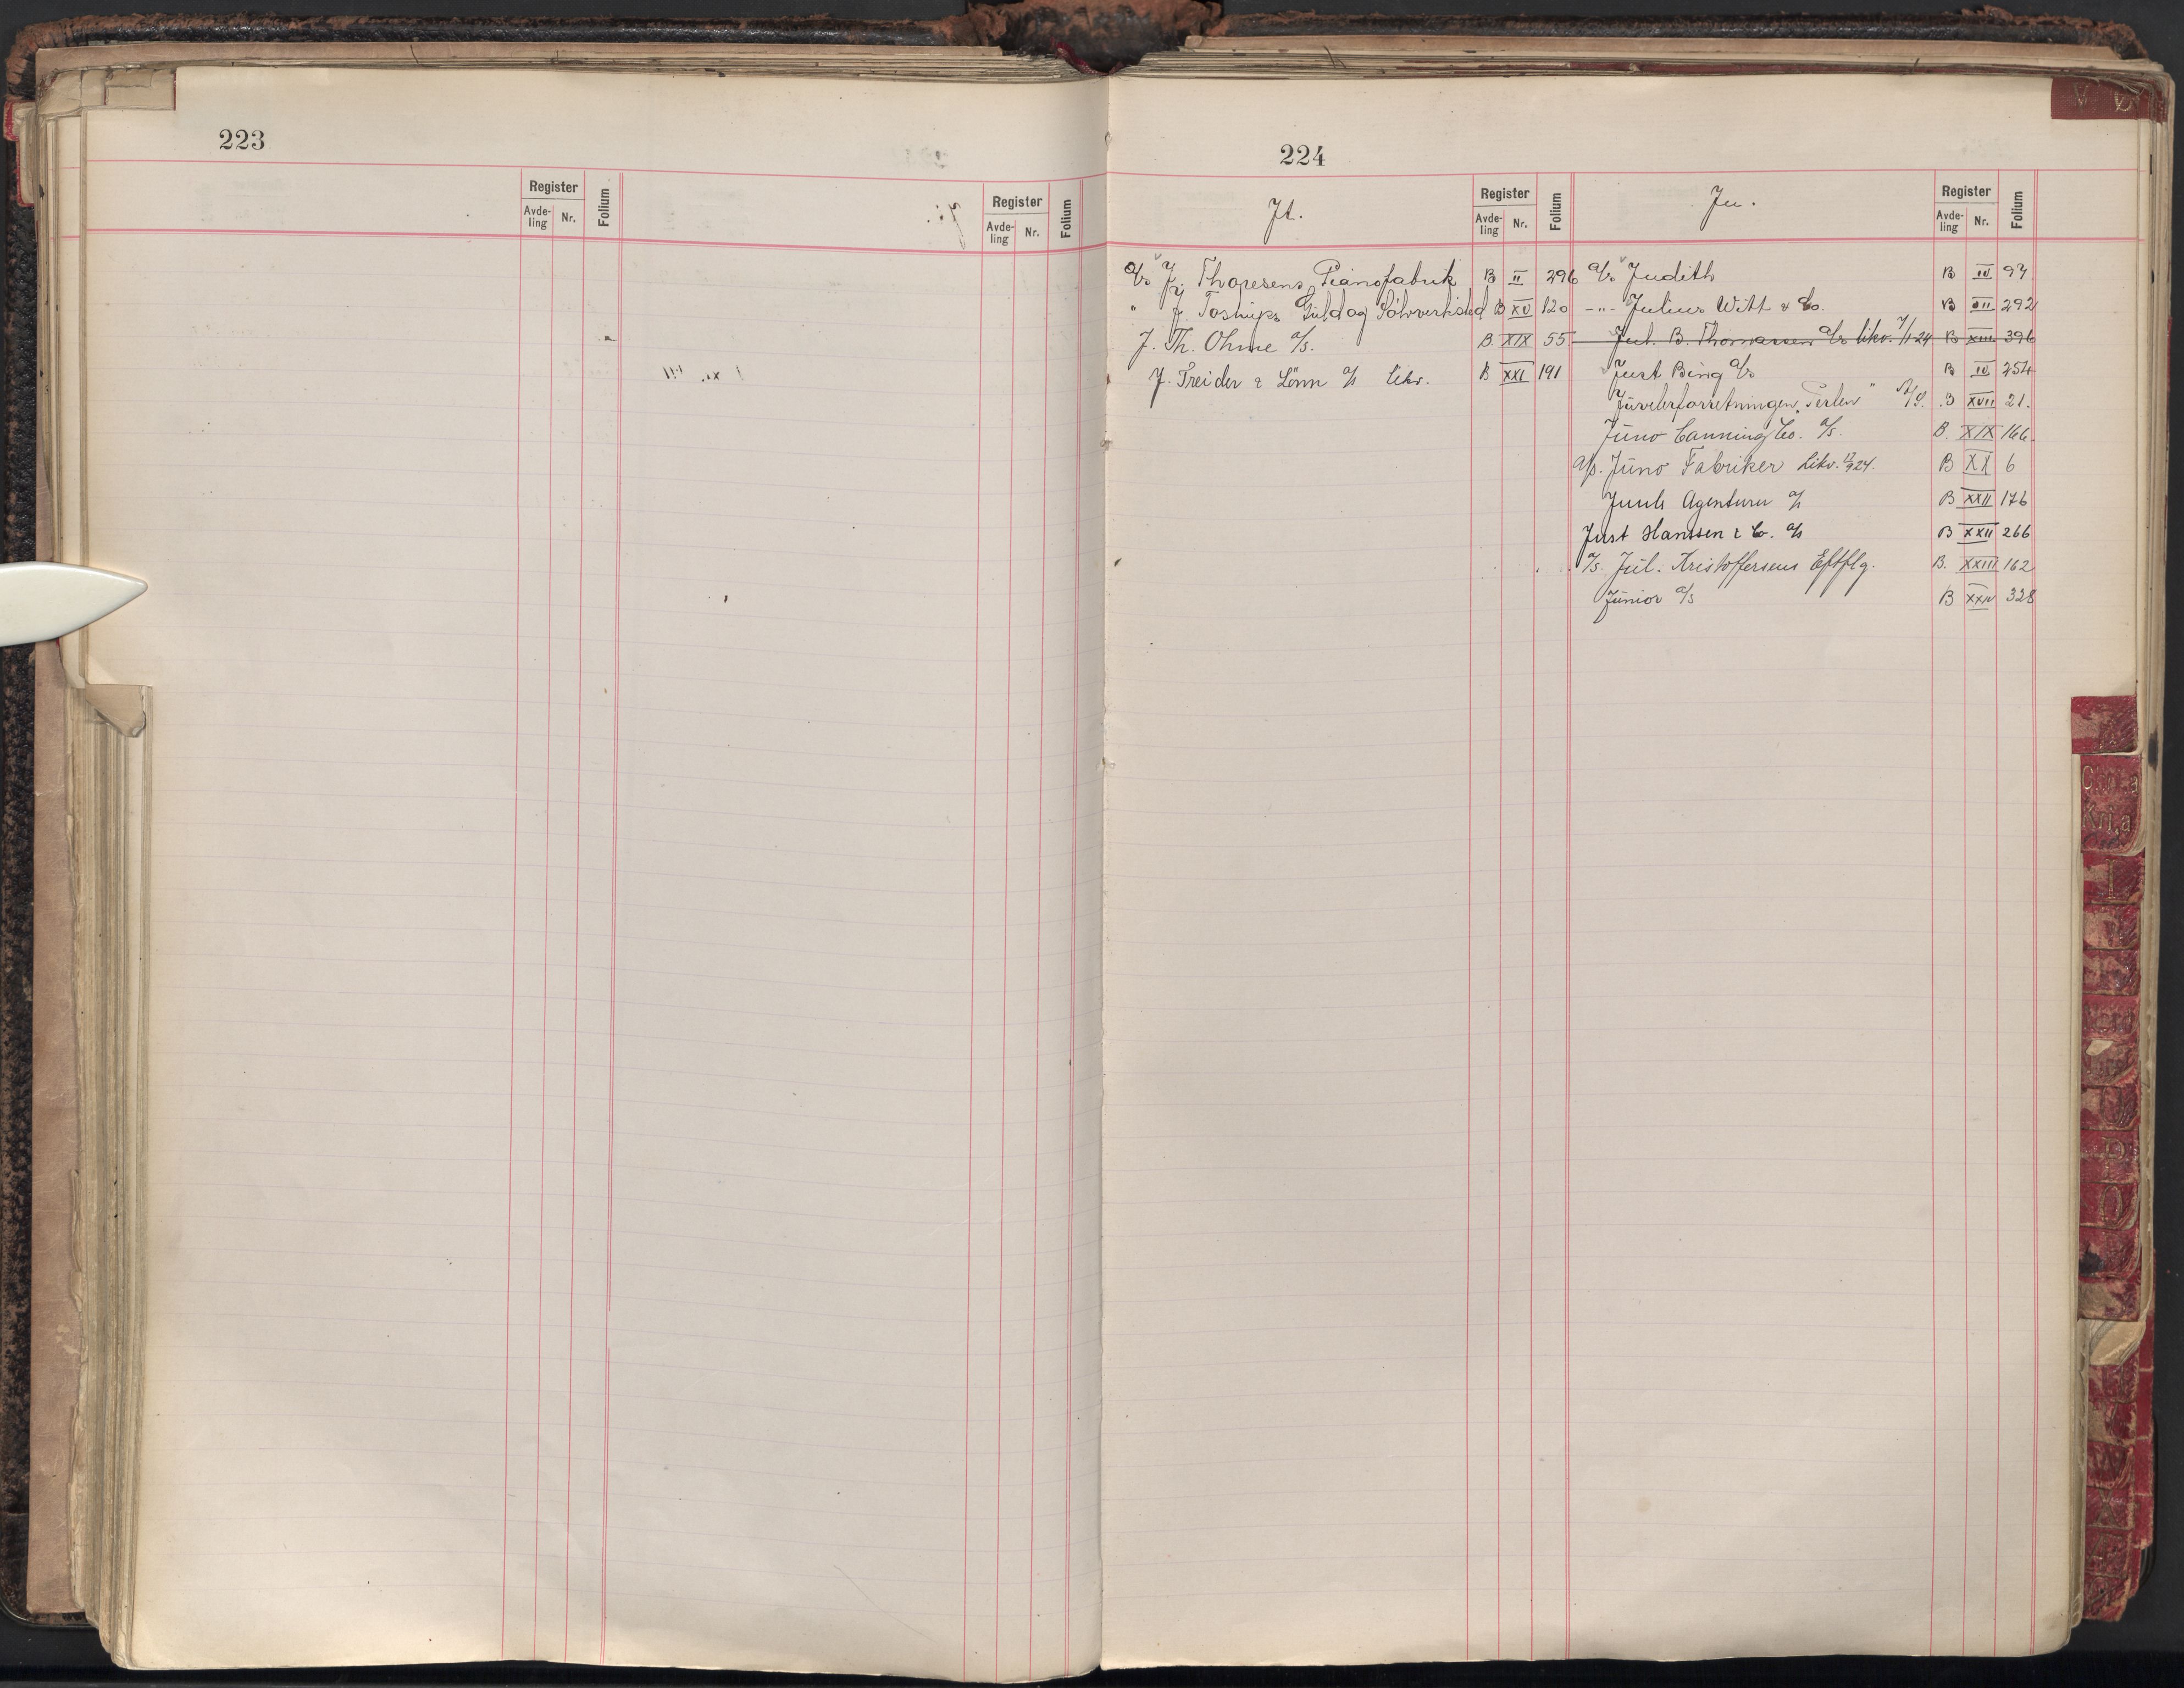 223
Register Folium Register Folium
Avde-ling Nr. Avde-ling Nr.
224
Jt. Register Folium Ju. Register Folium
Avde-ling Nr. Avde-ling Nr.
a/s J. Thoresens Pianofabrik B II 296
" J. Tostrups Guld og Sølvverksted B XV 120
J. Th. Ohme a/s. B. XIX 55
J. Treider & Lönn a/s Likv. B XXI 191
a/s Judith B IV 97
-"- Julius Witt & Co. B VII 292
Jul. B. Thomassen a/s likv. 7/1 24 B XIII 396
Just Bing a/s B IV 254
Juvelerforretningen "Perlen" A/S. B XVII 21.
Juno Canning Co. a/s. B. XIX 166.
A/s. Juno Fabriker Likv. 12/9 24. B XX 6
Juuls Agenturer a/s B XXII 176
Just Hanssen & Co. a/s B XXII 266
a/s. Jul. Kristoffersens Eftflg. B. XXIII 162
Junior a/s B XXIV 328